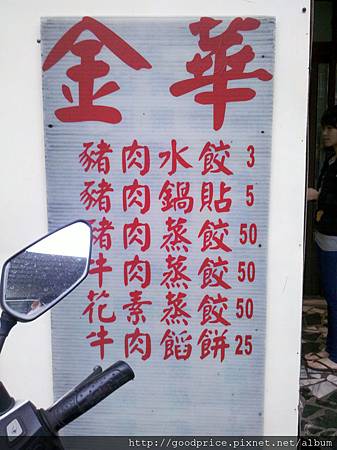 金華
豬肉水餃 3
豬肉鍋貼 5
豬肉蒸餃 50
牛肉蒸餃 50
花素蒸餃 50
牛肉餡餅 25
http://goodprice.pixnet.net/album